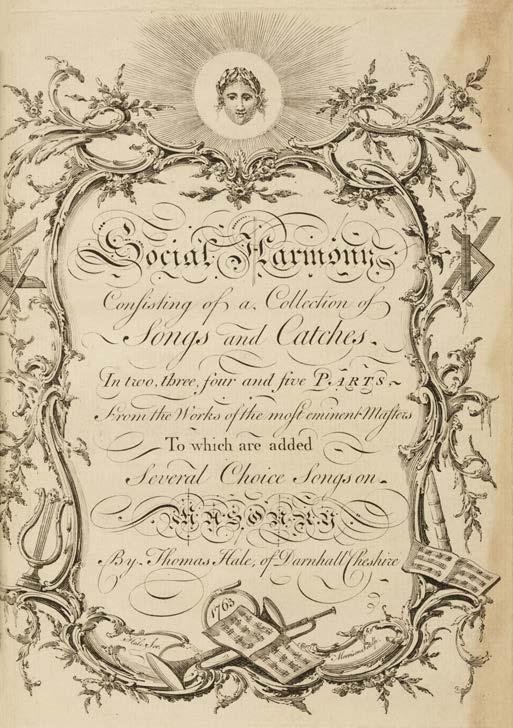 Social Harmony
Consisting of a Collection of
Songs and Catches.
In two, three, four and five PARTS
From the Works of the most eminent Masters
To which are added
Several Choice Songs on
MASONRY
By Thomas Hale, of Darnhall Cheshire
1763